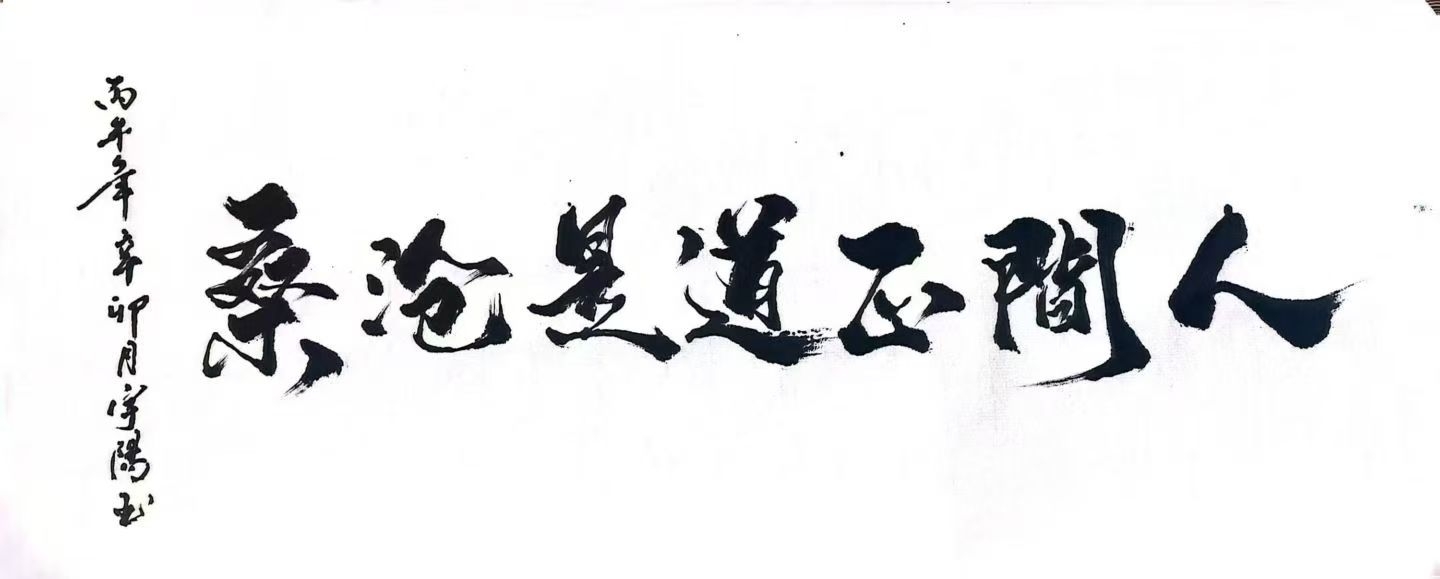 人間正道是沧桑
丙午年辛卯月宇陽书